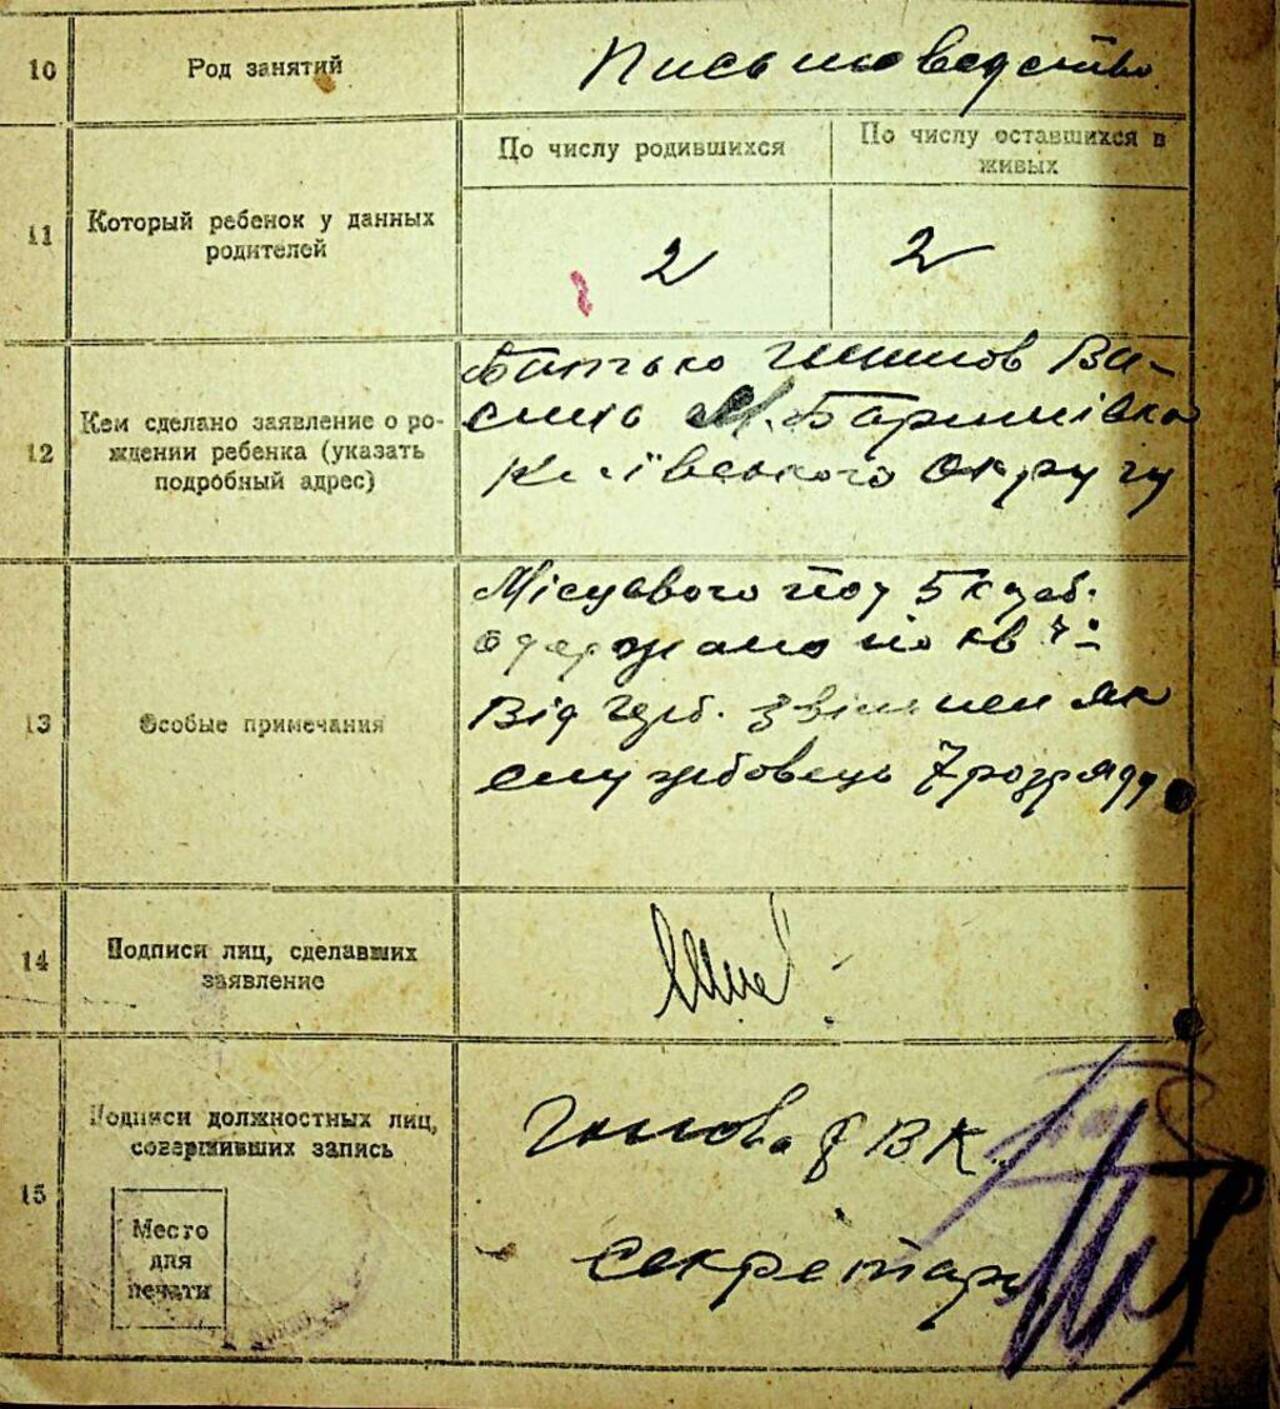 10
Род занятий
Письмоведство
11
Который ребенок у данных
родителей
По числу родившихся
По числу оставшихся в
живых
2
2
12
Кем сделано заявление о ро-
ждении ребенка (указать
подробный адрес)
Батько Ва-
силь М. Баришівка
Київського округу
13
Особые примечания
Місцевого под 5 к
одержано по кв
Від герб. звільнен як
службовець 7 розряду
14
Подписи лиц, сделавших
заявление
15
Подписи должностных лиц,
совершивших запись
Место
для
печати
Голова ВК
секретарь